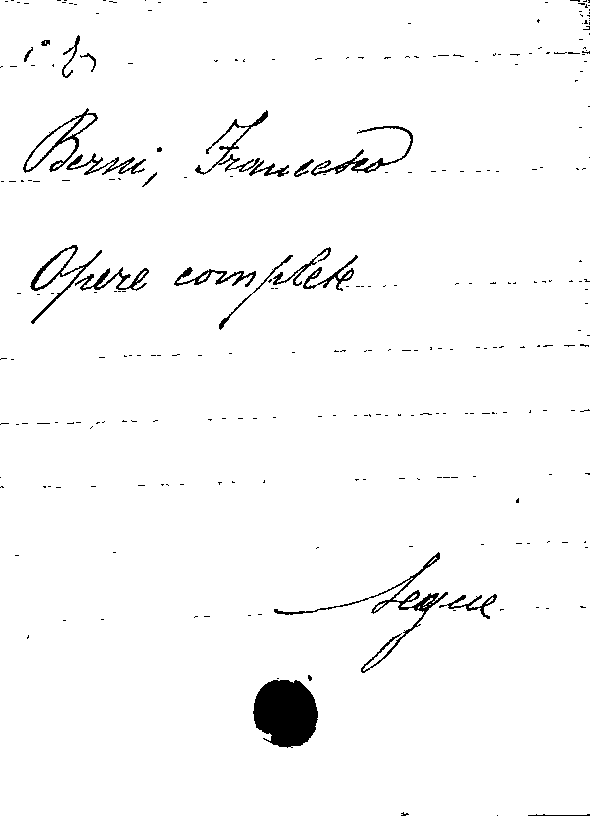 Berni, Francesco
Opere complete
segue